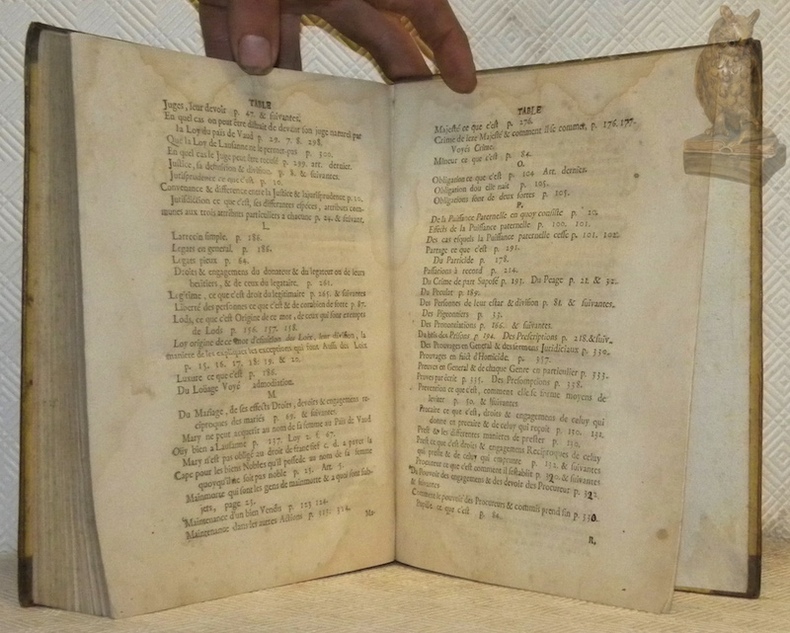 TABLE
Juges, leur devoir p. 47. & suivantes.
En quel cas on peut être distrait de devant son juge naturel par
la Loy du païs de Vaud p. 29. 7. 8. 298.
Que la Loy de Lausanne ne le permet pas p. 302.
En quel cas le Juge peut être recusé p. 299. art. dernier.
Justice, sa definition & division. p. 8. & suivantes.
Jurisprudence ce que c'est p. 10.
Convenance & difference entre la Justice & la jurisprudence p. 10.
Jurisdiction ce que c'est, ses differantes especes, attributs com-
muns aux trois attributs particuliers a chacune p. 24. & suivant.
L.
Larrecin simple. p. 186.
Legats en general. p. 186.
Legats pieux p. 64.
Droits & engagement du donneur & du legateur ou de leurs
heritiers, & de ceux du legataire. p. 261.
Legitime, ce que c'est droit du legitimaire p. 265. & suivantes
Liberté des personnes ce que c'est & de combien de sorte p. 87.
Lods, ce que c'est Origine de ce mot, de ceux qui sont exempts
de Lods p. 156. 157. 158.
Loy origine de ce mot definition des Loix, leur division, la
maniere de les expliquer les exceptions qui sont Aussi des Loix
p. 15. 16. 17. 18. 19. & 20.
Luxure ce que c'est p. 186.
Du Louage Voyé admodiation.
M
Du Mariage, de ses effects Droits, devoirs & engagement re-
ciproques des mariés p. 65. & suivantes.
Mary ne peut acquerir au nom de sa femme au Païs de Vaud
Ouy bien a Lausanne p. 157. Loy 2. f. 67.
Mary n'est pas obligé au droit de franc fief c. d. a poser la
Cape pour les biens Nobles qu'il possede au nom de sa femme
quoy qu'il ne soit pas noble p. 23. Art. 5.
Mainmorte qui sont les gens de mainmorte & a quoi sont sub-
jets, page 23.
Maintenance d'un bien Vendu p. 123 124.
Maintenance dans les autres Actions p. 313. 314.
Ma-
TABLE
Majesté ce que c'est p. 276.
Crime de leze Majesté & comment il se commet, p. 176. 177.
Voyés Crime.
Mineur ce que c'est p. 84.
O.
Obligation ce que c'est p. 104 Art. dernier.
Obligation dou elle nait p. 105.
Obligations sont de deux sortes p. 105.
P.
De la Puissance Paternelle en quoy consiste p. 20.
Effects de la Puissance paternelle p. 100. 101.
Des cas esquels la Puissance paternelle cesse p. 101. 102.
Partage ce que c'est p. 291.
Du Parricide p. 178.
Passations à record p. 214.
Du Crime de part Suposé p. 193. Du Peage p. 21. & 32.
Du Peculat p. 189.
Des Personnes de leur estat & division p. 81. & suivantes.
Des Pigeonniers p. 33.
Des Postpositions p. 166. & suivantes.
Du bris des Prisons p. 194. Des Prescriptions p. 218. & suiv.
Des Preuvages en General & des serments Juridiciaux p. 330.
Preuvages en fait d'Homicide. p. 357.
Preuves en General & de chaque Genre en particulier p. 333.
Preuve par écrit p. 335. Des Presomptions p. 358.
Prevention ce que c'est, comment elle se forme moyens de
lever p. 50. & suivantes
Precaire ce que c'est, droits & engagement de celuy qui
donne en precaire & de celuy qui reçoit p. 130. 131.
Prest & les differentes manieres de prester p. 130.
Prest ce que c'est droits & engagement Reciproques de celuy
qui preste & de celuy qui emprunte p. 132. & suivantes
Procureur ce que c'est comment il s'establit p. 320. & suivantes
Du Pouvoir des engagement & des devoir des Procureur p. 322.
& suivantes
Comment le pouvoir des Procureurs & commis prend fin p. 330.
Pupille ce que c'est p. 80.
R.